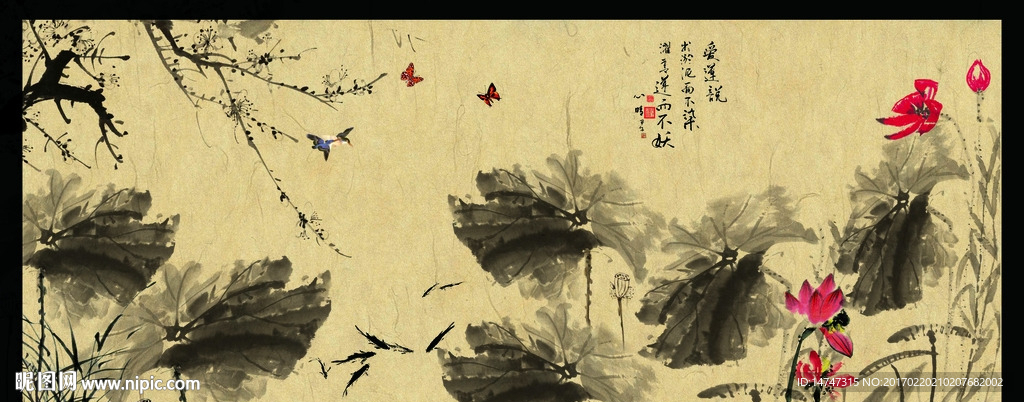 爱莲說
出淤泥而不染
濯清涟而不妖
昵图网 www.nipic.com
ID:14747315 NO:20170220210207682002